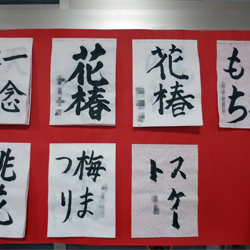 一念
花椿
花椿
もち
桃花
梅ま
つり
スケー
ト